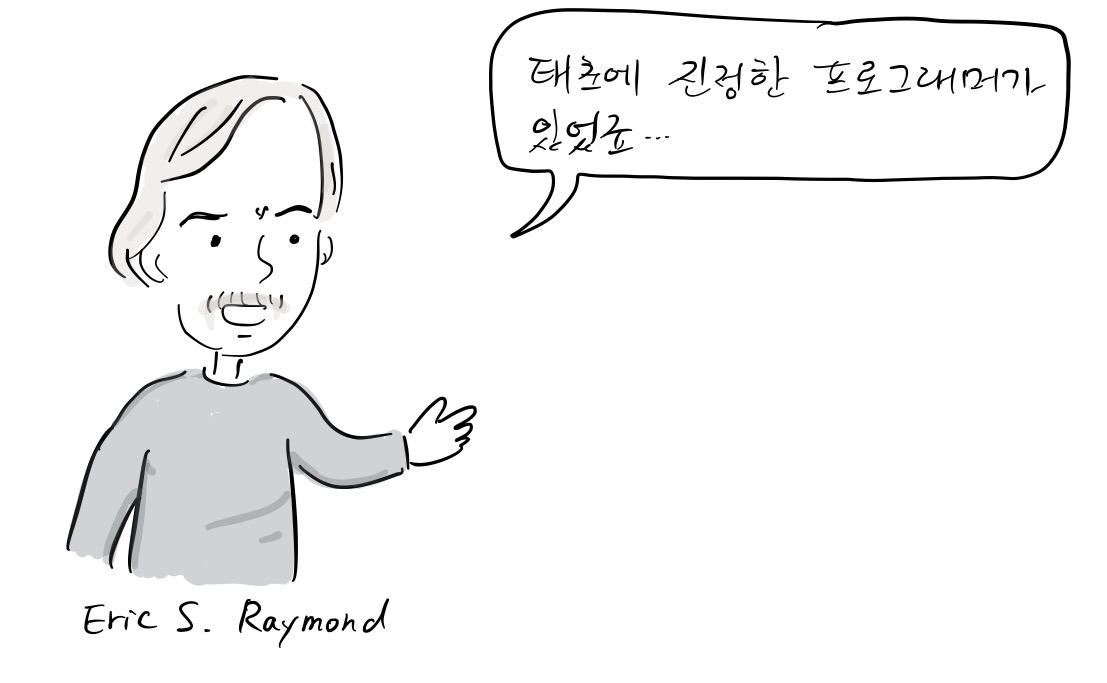 태초에 진정한 프로그래머가
있었죠...
Eric S. Raymond